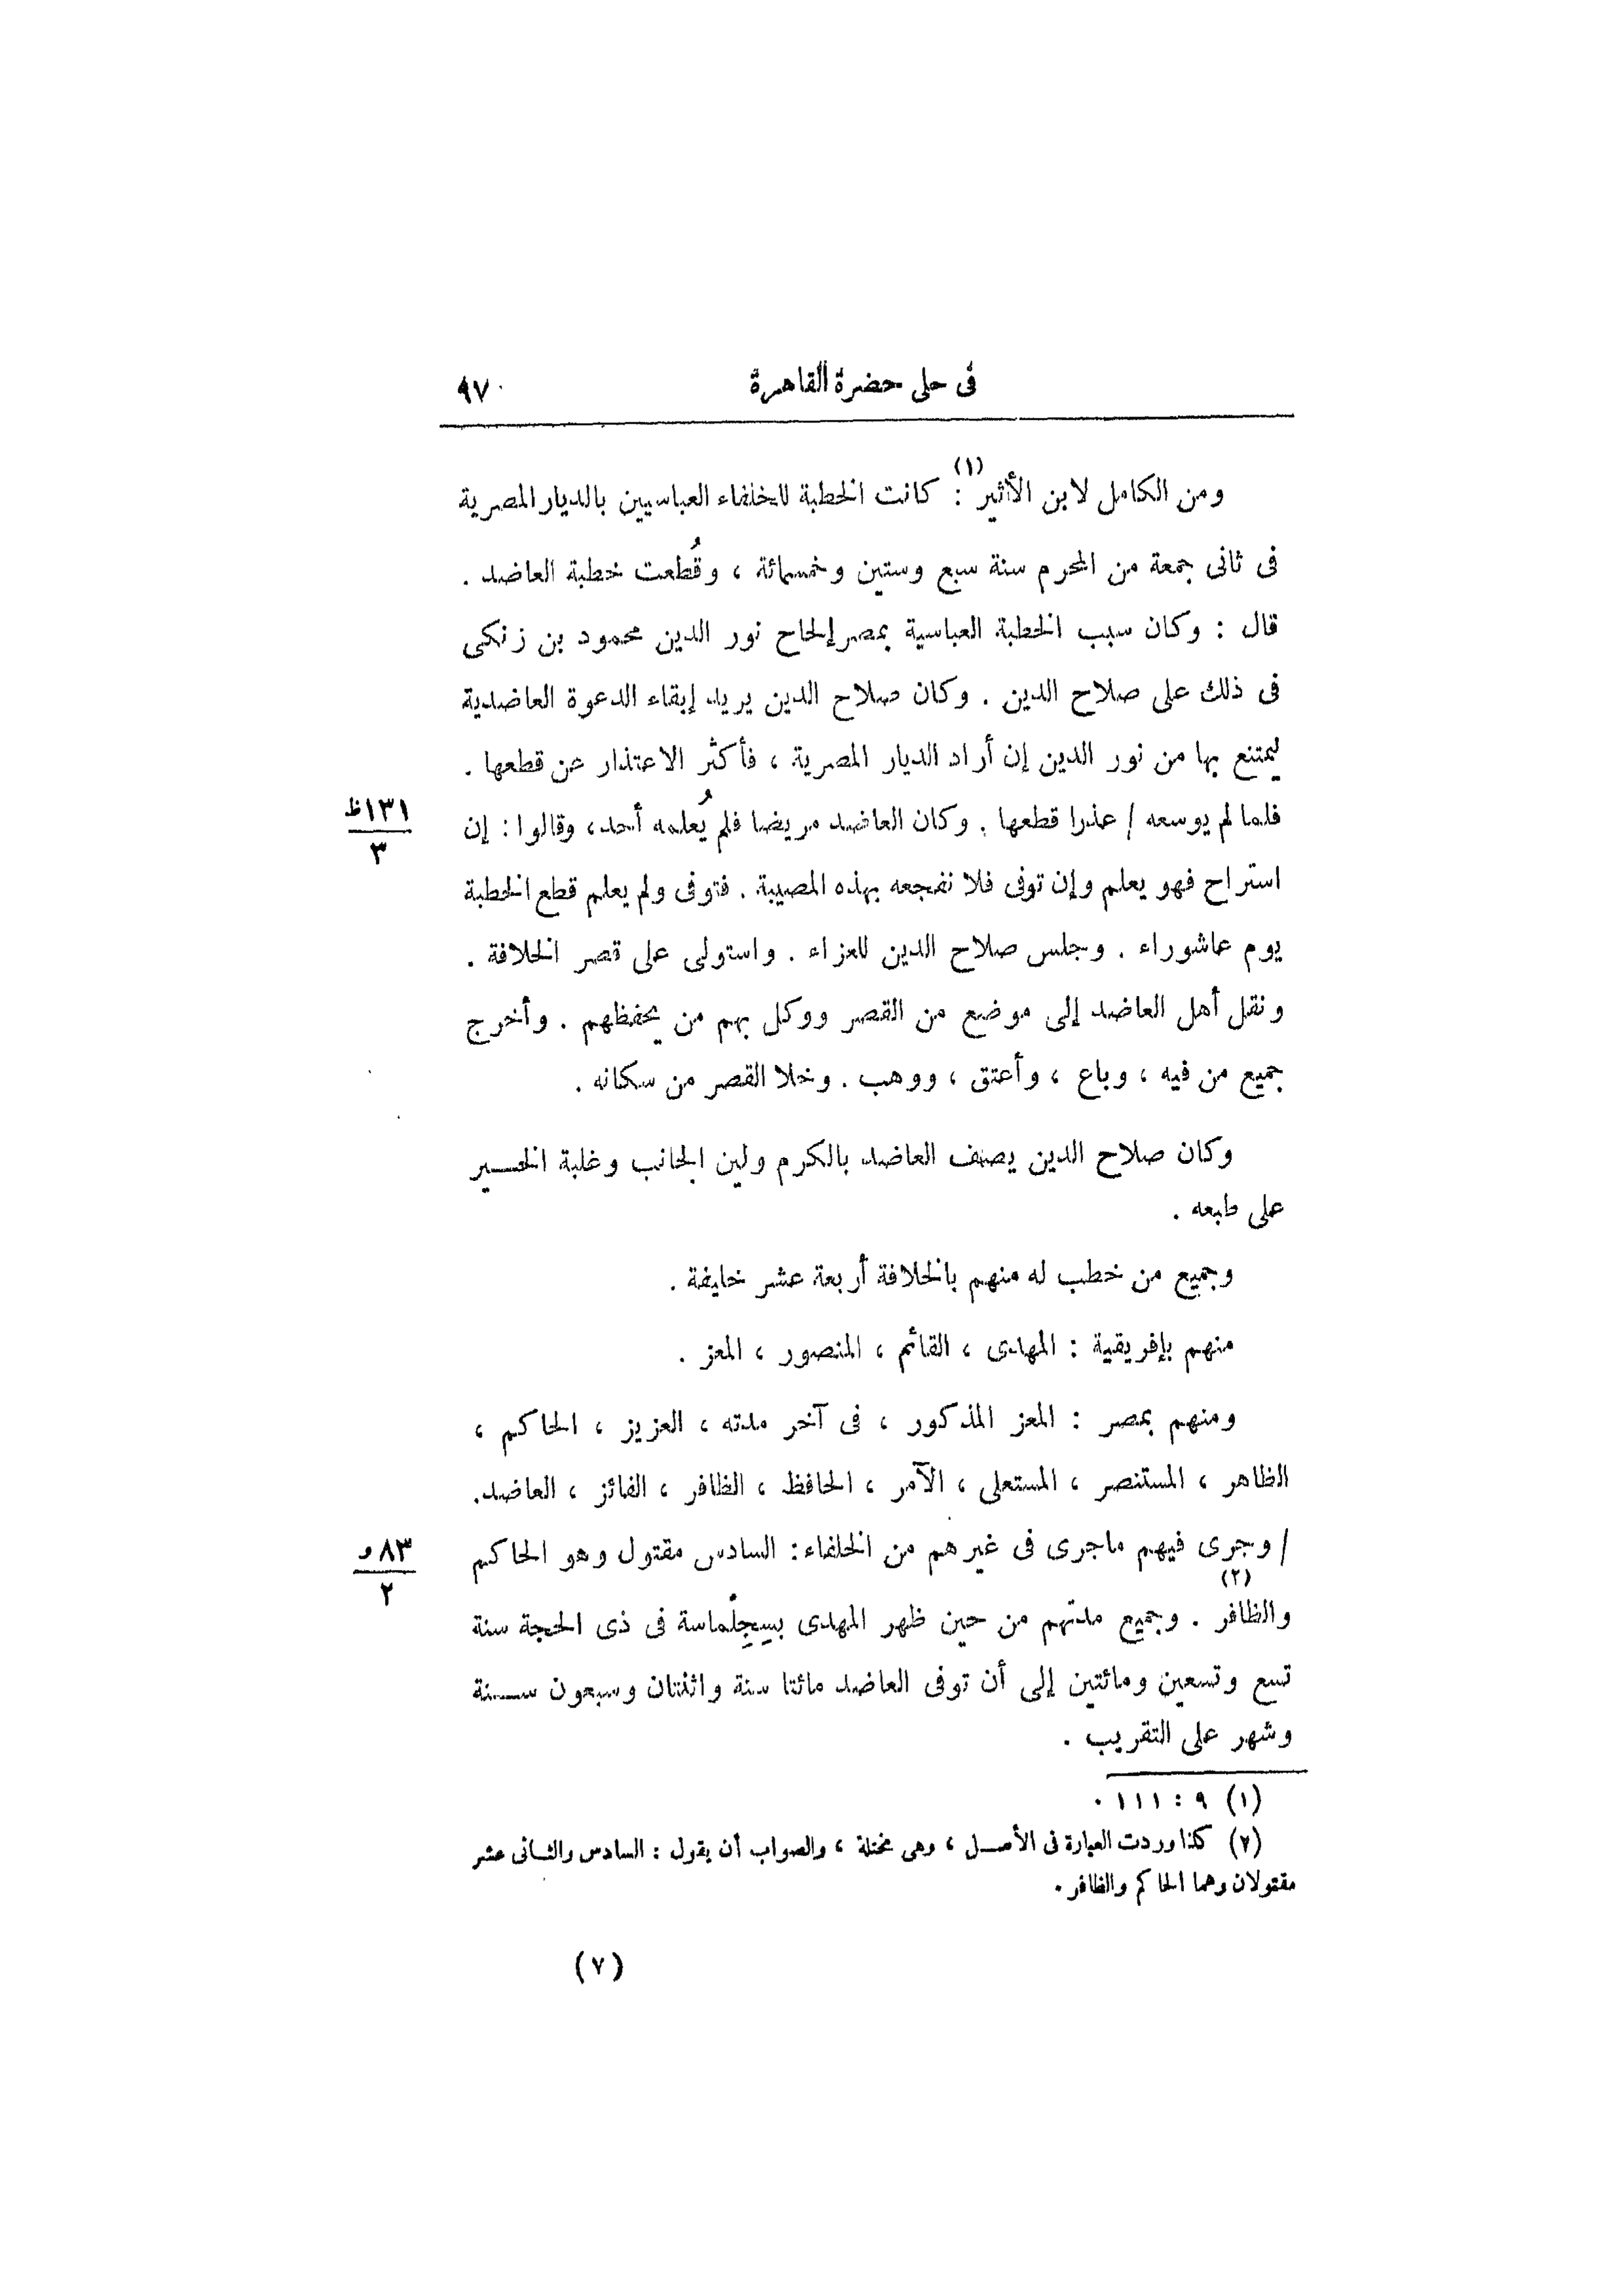 فى حلى حضرة القاهرة ٩٧
ومن الكامل لابن الأثير(١) : كانت الخطبة للخلفاء العباسيين بالديار المصرية
فى ثانى جمعة من المحرم سنة سبع وستين وخمسمائة ، وقُطعت خطبة العاضد .
قال : وكان سبب الخطبة العباسية بمصر إلحاح نور الدين محمود بن زنكى
فى ذلك على صلاح الدين . وكان صلاح الدين يريد إبقاء الدعوة العاضدية
ليمتنع بها من نور الدين إن أراد الديار المصرية ، فأكثر الاعتذار عن قطعها .
فلما لم يوسعه / عذرا قطعها . وكان العاضد مريضا فلم يُعلمه أحد ، وقالوا : إن
١٣١ظ
٣
استراح فهو يعلم وإن توفى فلا نفجعه بهذه المصيبة . فتوفى ولم يعلم قطع الخطبة
يوم عاشوراء . وجلس صلاح الدين للعزاء . واستولى على قصر الخلافة .
ونقل أهل العاضد إلى موضع من القصر ووكل بهم من يحفظهم . وأخرج
جميع من فيه ، وباع ، وأعتق ، ووهب . وخلا القصر من سكانه .
وكان صلاح الدين يصف العاضد بالكرم ولين الجانب وغلبة الخير
على طبعه .
وجميع من خطب له منهم بالخلافة أربعة عشر خليفة .
منهم بإفريقية : المهدى ، القائم ، المنصور ، المعز .
ومنهم بمصر : المعز المذكور ، فى آخر مدته ، العزيز ، الحاكم ،
الظاهر ، المستنصر ، المستعلى ، الآمر ، الحافظ ، الظافر ، الفائز ، العاضد.
/ وجرى فيهم ماجرى فى غيرهم من الخلفاء : السادس مقتول وهو الحاكم
٨٣ و
٢
والظافر(٢) . وجميع مدتهم من حين ظهر المهدى بسِجِلْماسة فى ذى الحجة سنة
تسع وتسعين ومائتين إلى أن توفى العاضد مائتا سنة واثنتان وسبعون سنة
وشهر على التقريب .
(١) ٩ : ١١١ .
(٢) كذا وردت العبارة فى الأصل ، وهى مختلة ، والصواب أن يقول : السادس والثانى عشر
مقتولان وهما الحاكم والظافر .
(٧)